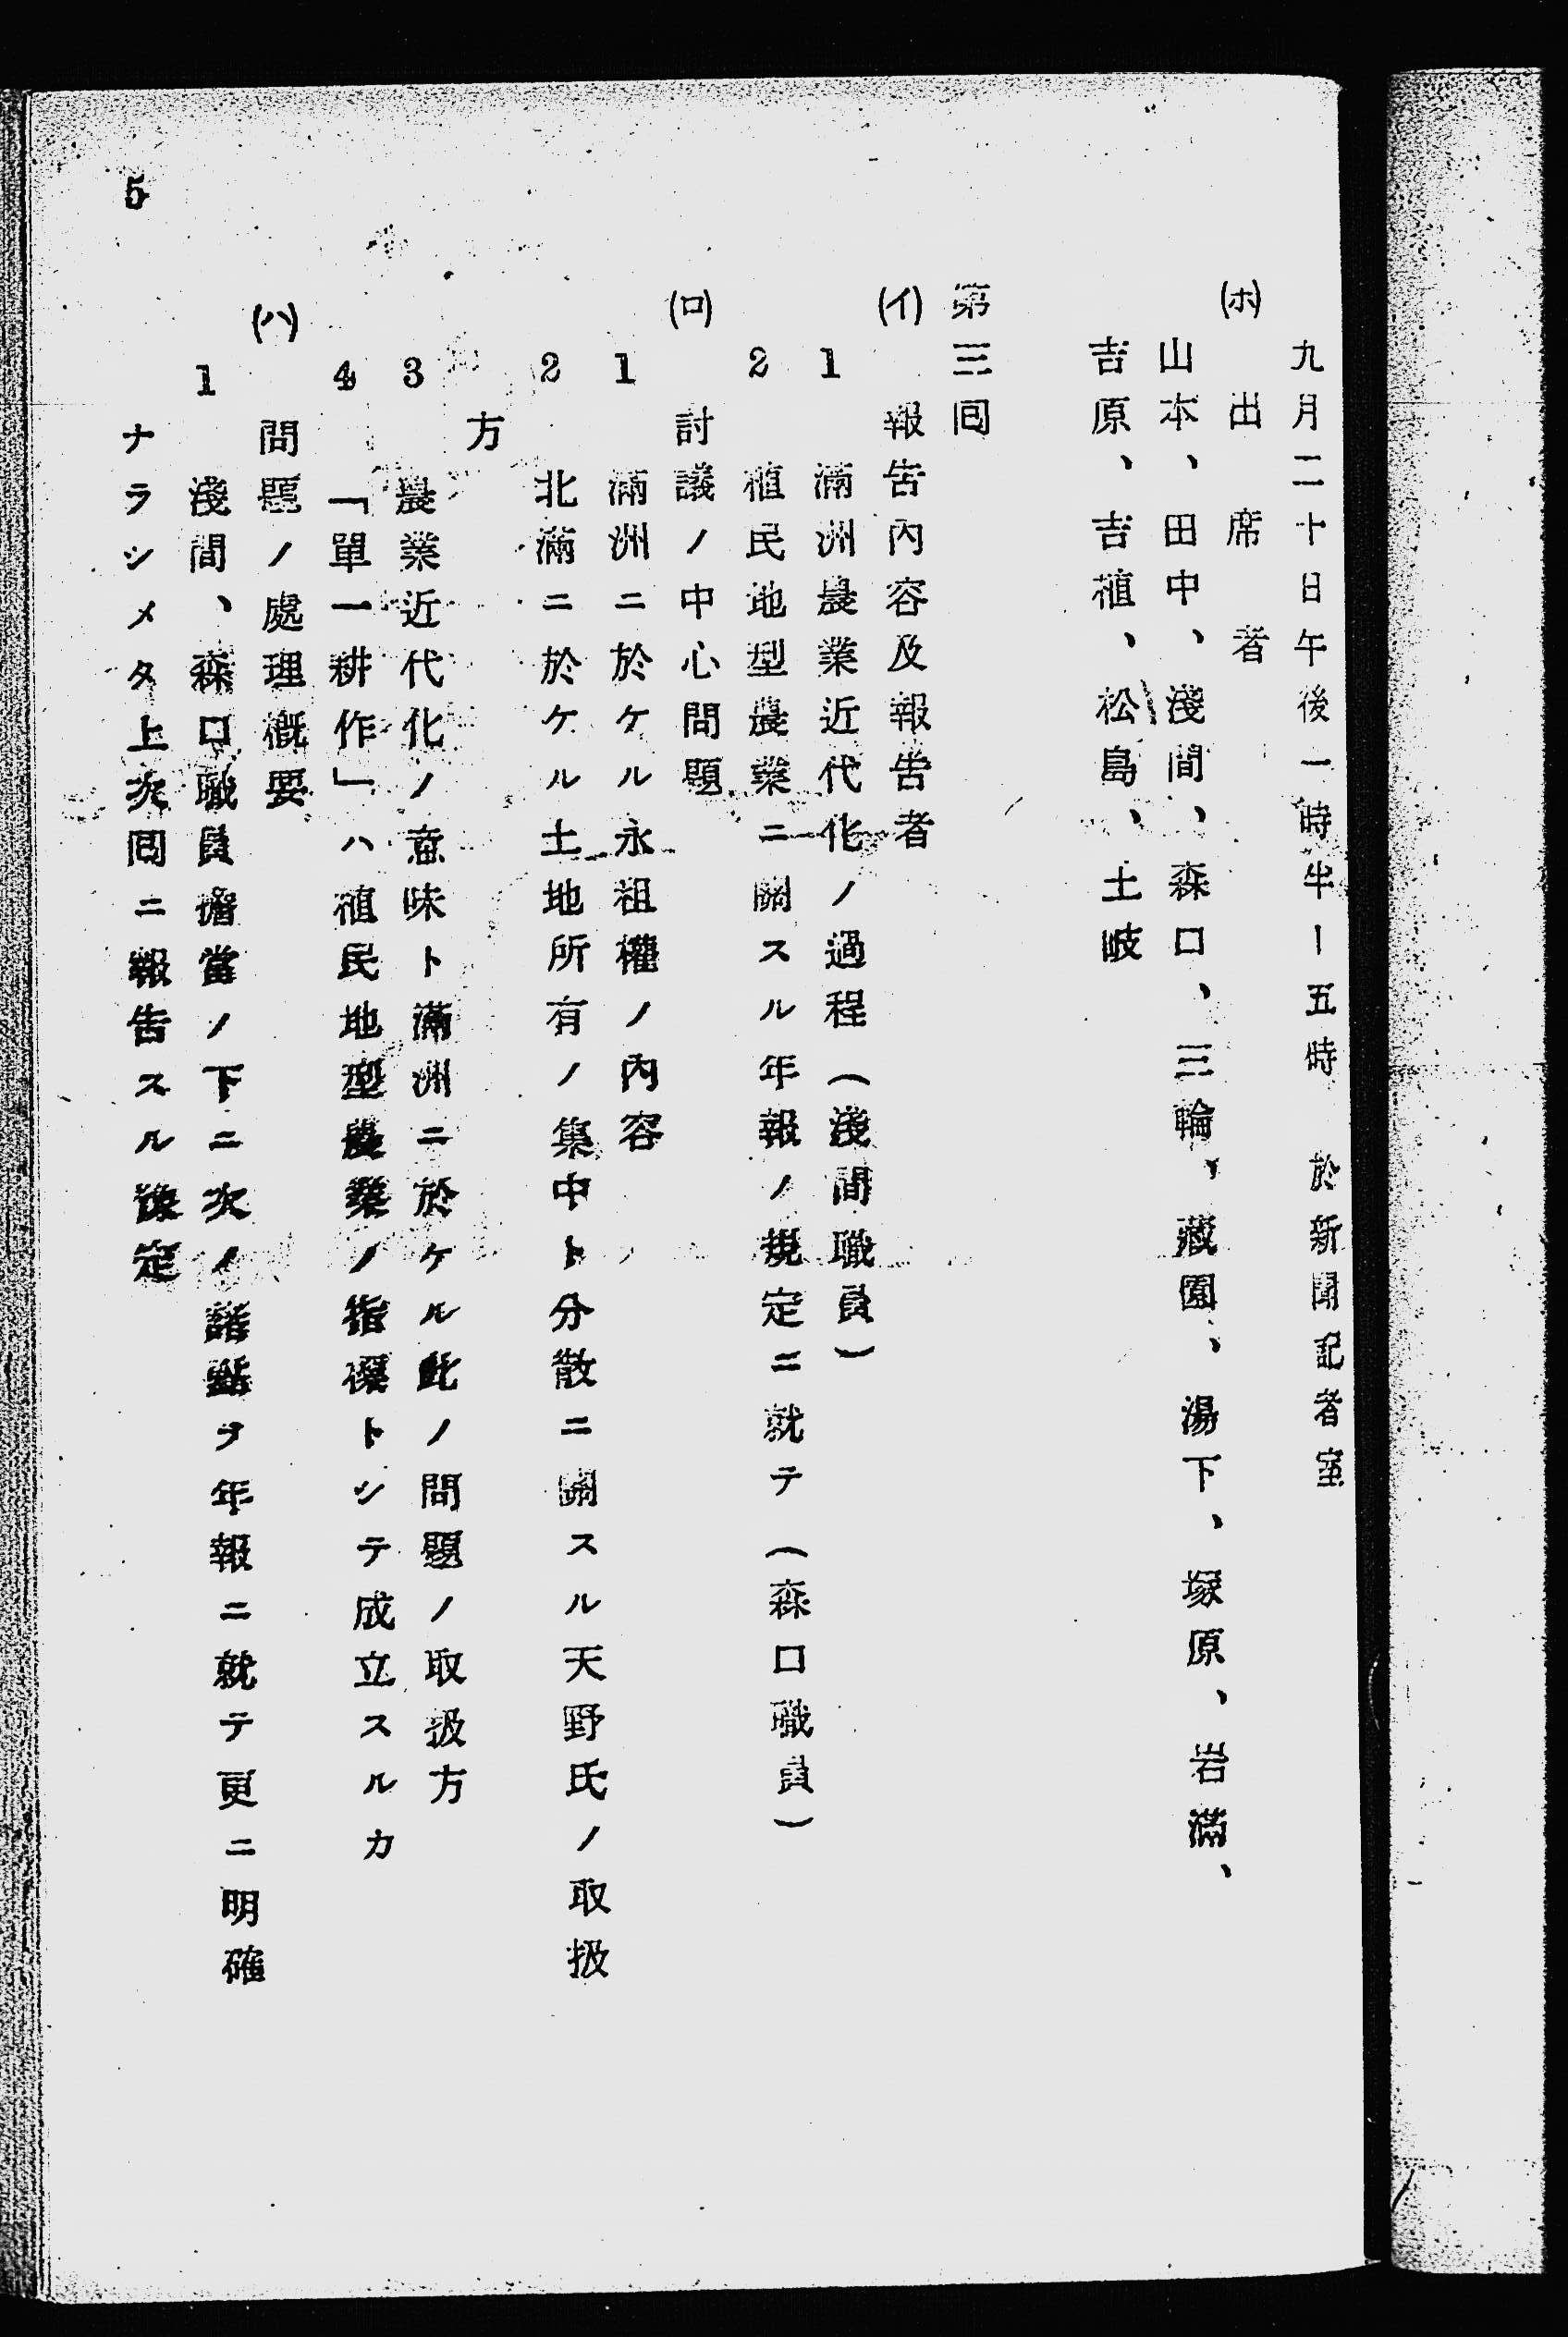 九月二十日午後一時半ー五時　於新聞記者室
(ホ)　出席者
山本、田中、淺間、森口、三輪、藏園、湯下、塚原、岩滿、
吉原、吉植、松島、土岐
第三囘
(イ)　報告內容及報告者
1　滿洲農業近代化ノ過程（淺間職員）
2　植民地型農業ニ關スル年報ノ規定ニ就テ（森口職員）
(ロ)　討議ノ中心問題
1　滿洲ニ於ケル永租權ノ內容
2　北滿ニ於ケル土地所有ノ集中ト分散ニ關スル天野氏ノ取扱
方
3　農業近代化ノ意味ト滿洲ニ於ケル此ノ問題ノ取扱方
4　「單一耕作」ハ植民地型農業ノ指標トシテ成立スルカ
(ハ)　問題ノ處理槪要
1　淺間、森口職員擔當ノ下ニ次ノ諸點ヲ年報ニ就テ更ニ明確
ナラシメタ上次囘ニ報告スル後定
5